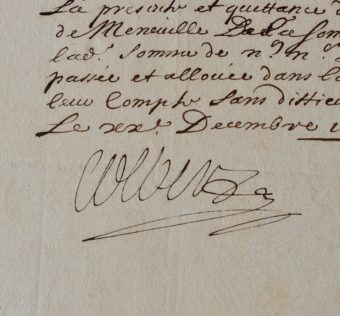 La presente et quittance d
de Meneville De la som
lad. somme de n.m n.
passée et allouée dans l
leur Compte sans diffic
Le xx.e Decembre 1
Colbert